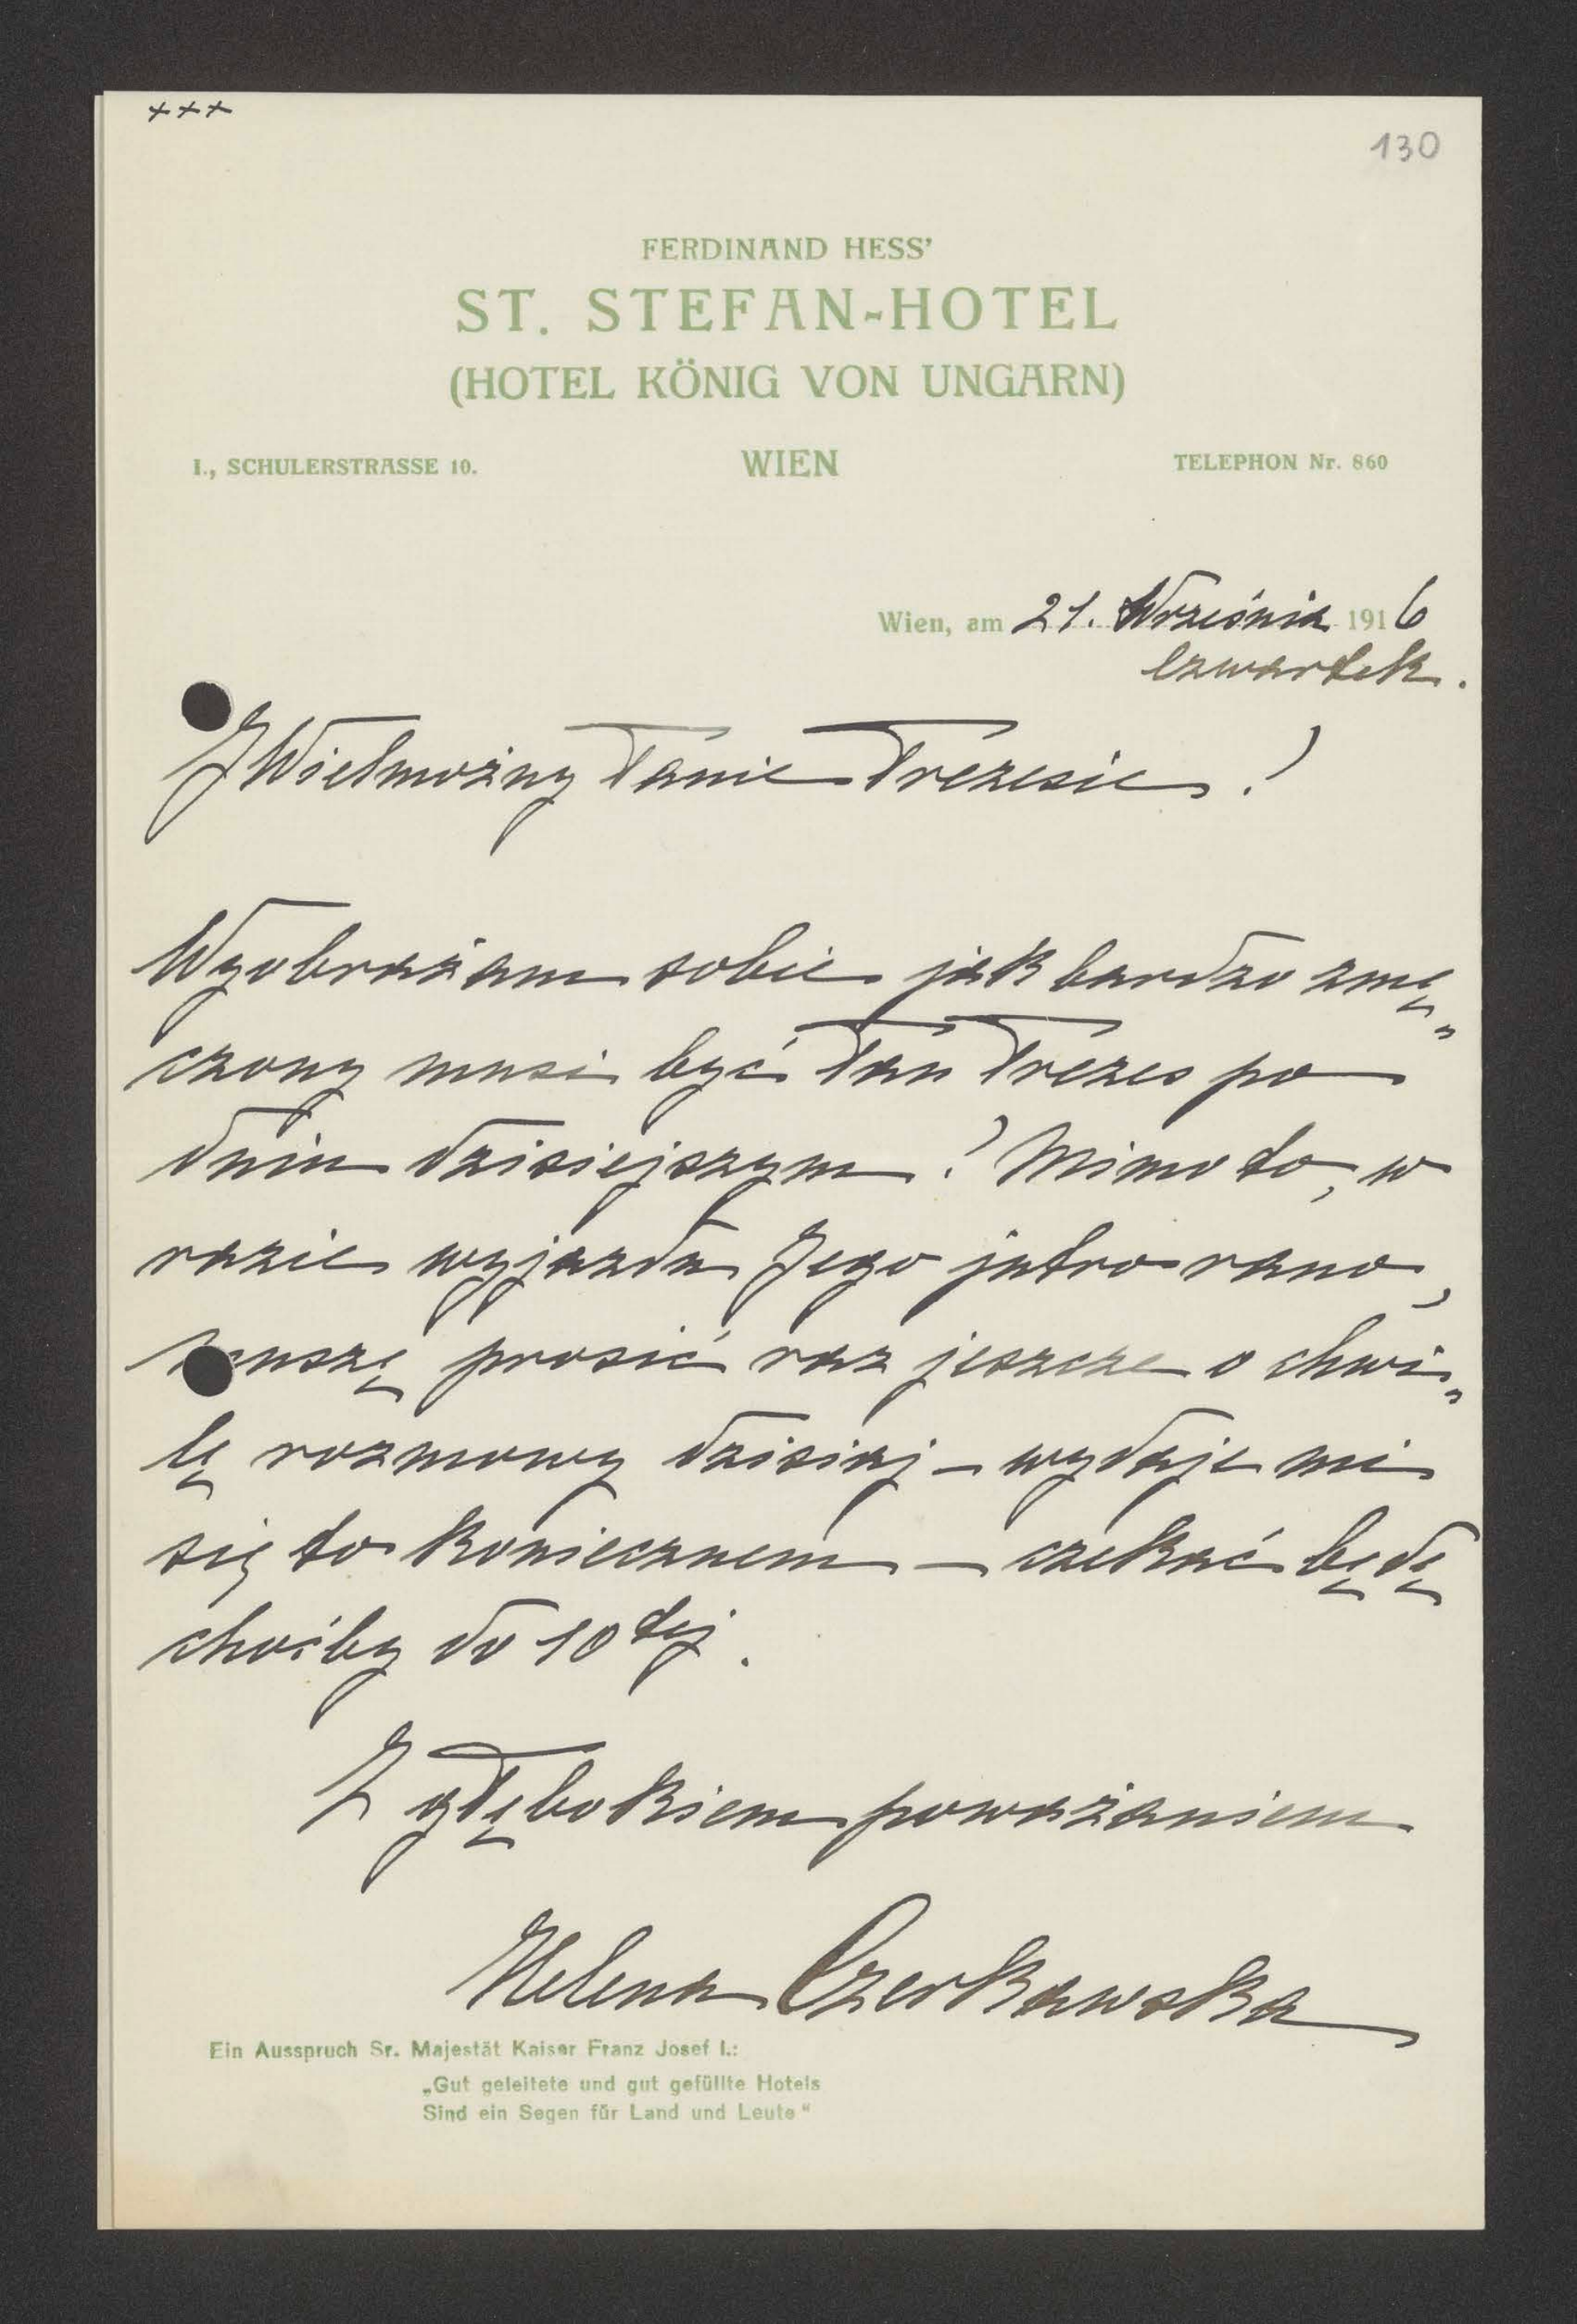 +++
130
FERDINAND HESS'
ST. STEFAN-HOTEL
(HOTEL KÖNIG VON UNGARN)
I., SCHULERSTRASSE 10. WIEN TELEPHON Nr. 860
Wien, am 21. Września 1916
czwartek.
JWielmożny Panie Prezesie!
Wyobrażam sobie jak bardzo zmę„
czony musi być Pan Prezes po
dniu dzisiejszym! Mimo to, w
razie wyjazdu Jego jutro rano,
muszę prosić raz jeszcze o chwi„
lę rozmowy dzisiaj – wydaje mi
się to koniecznem – czekać będę
choćby do 10 tej.
Z głębokiem poważaniem
Helena Czerkawska
Ein Ausspruch Sr. Majestät Kaiser Franz Josef I.:
„Gut geleitete und gut gefüllte Hotels
Sind ein Segen für Land und Leute“